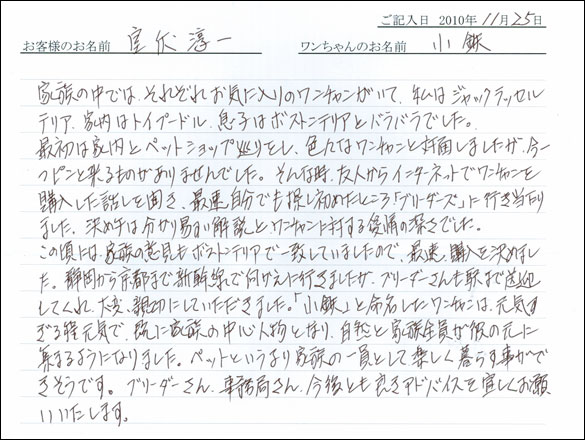 ご記入日 2010年 11月 25日
お客様のお名前 室伏 淳一 ワンちゃんのお名前 小鉄
家族の中では、それぞれお気に入りのワンチャンがいて、私はジャックラッセル
テリア、家内はトイプードル、息子はボストンテリアとバラバラでした。
最初は家内とペットショップ巡りをし、色んなワンチャンと対面しましたが、今一
つピンと来るものがありませんでした。そんな時、友人からインターネットでワンチャンを
購入した話しを聞き、最速自分でも探し初めたところ「ブリーダーズ」に行き当たり
ました。決め手は分かり易い解説とワンチャンに対する愛情の深さでした。
この頃には、家族の意見もボストンテリアで一致していましたので、最速、購入を決めまし
た。静岡から京都まで新幹線で向かえに行きましたが、ブリーダーさんも駅まで送迎
してくれ、大変、親切にしていただきました。「小鉄」と命名したワンチャンは、元気す
ぎる程元気で、既に家族の中心人物となり、自然と家族全員が彼の元に
集まるようになりました。ペットというより家族の一員として楽しく暮らす事がで
きそうです。ブリーダーさん、事務局さん、今後とも良きアドバイスを宜しくお願
いいたします。